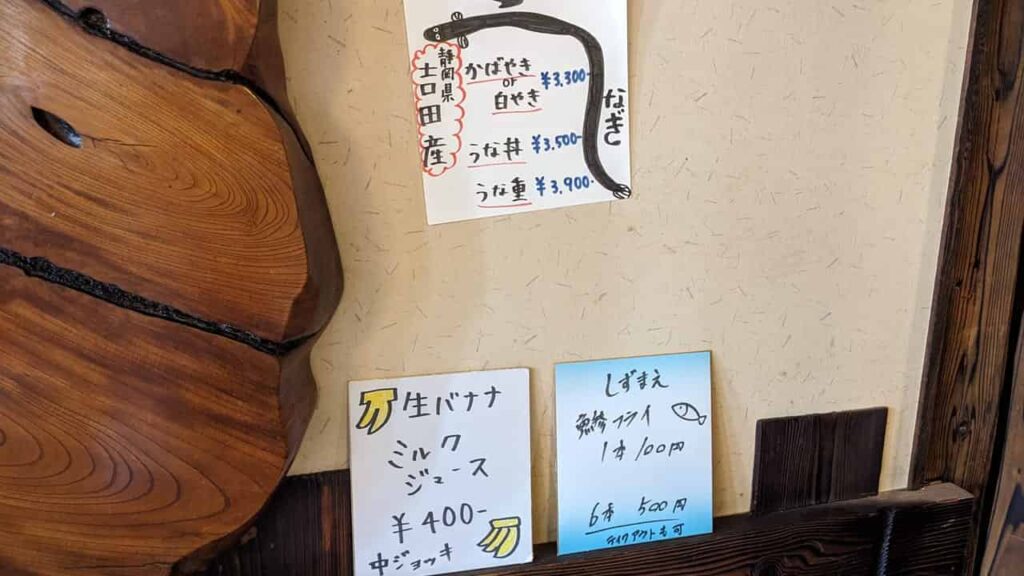 なぎ
静岡県
吉田産
かばやき
or
白やき
¥3,300-
うな丼 ¥3,500-
うな重 ¥3,900-
生バナナ
ミルク
ジュース
¥400-
中ジョッキ
しずまえ
鰺フライ
1本 100円
6本 500円
テイクアウトも可